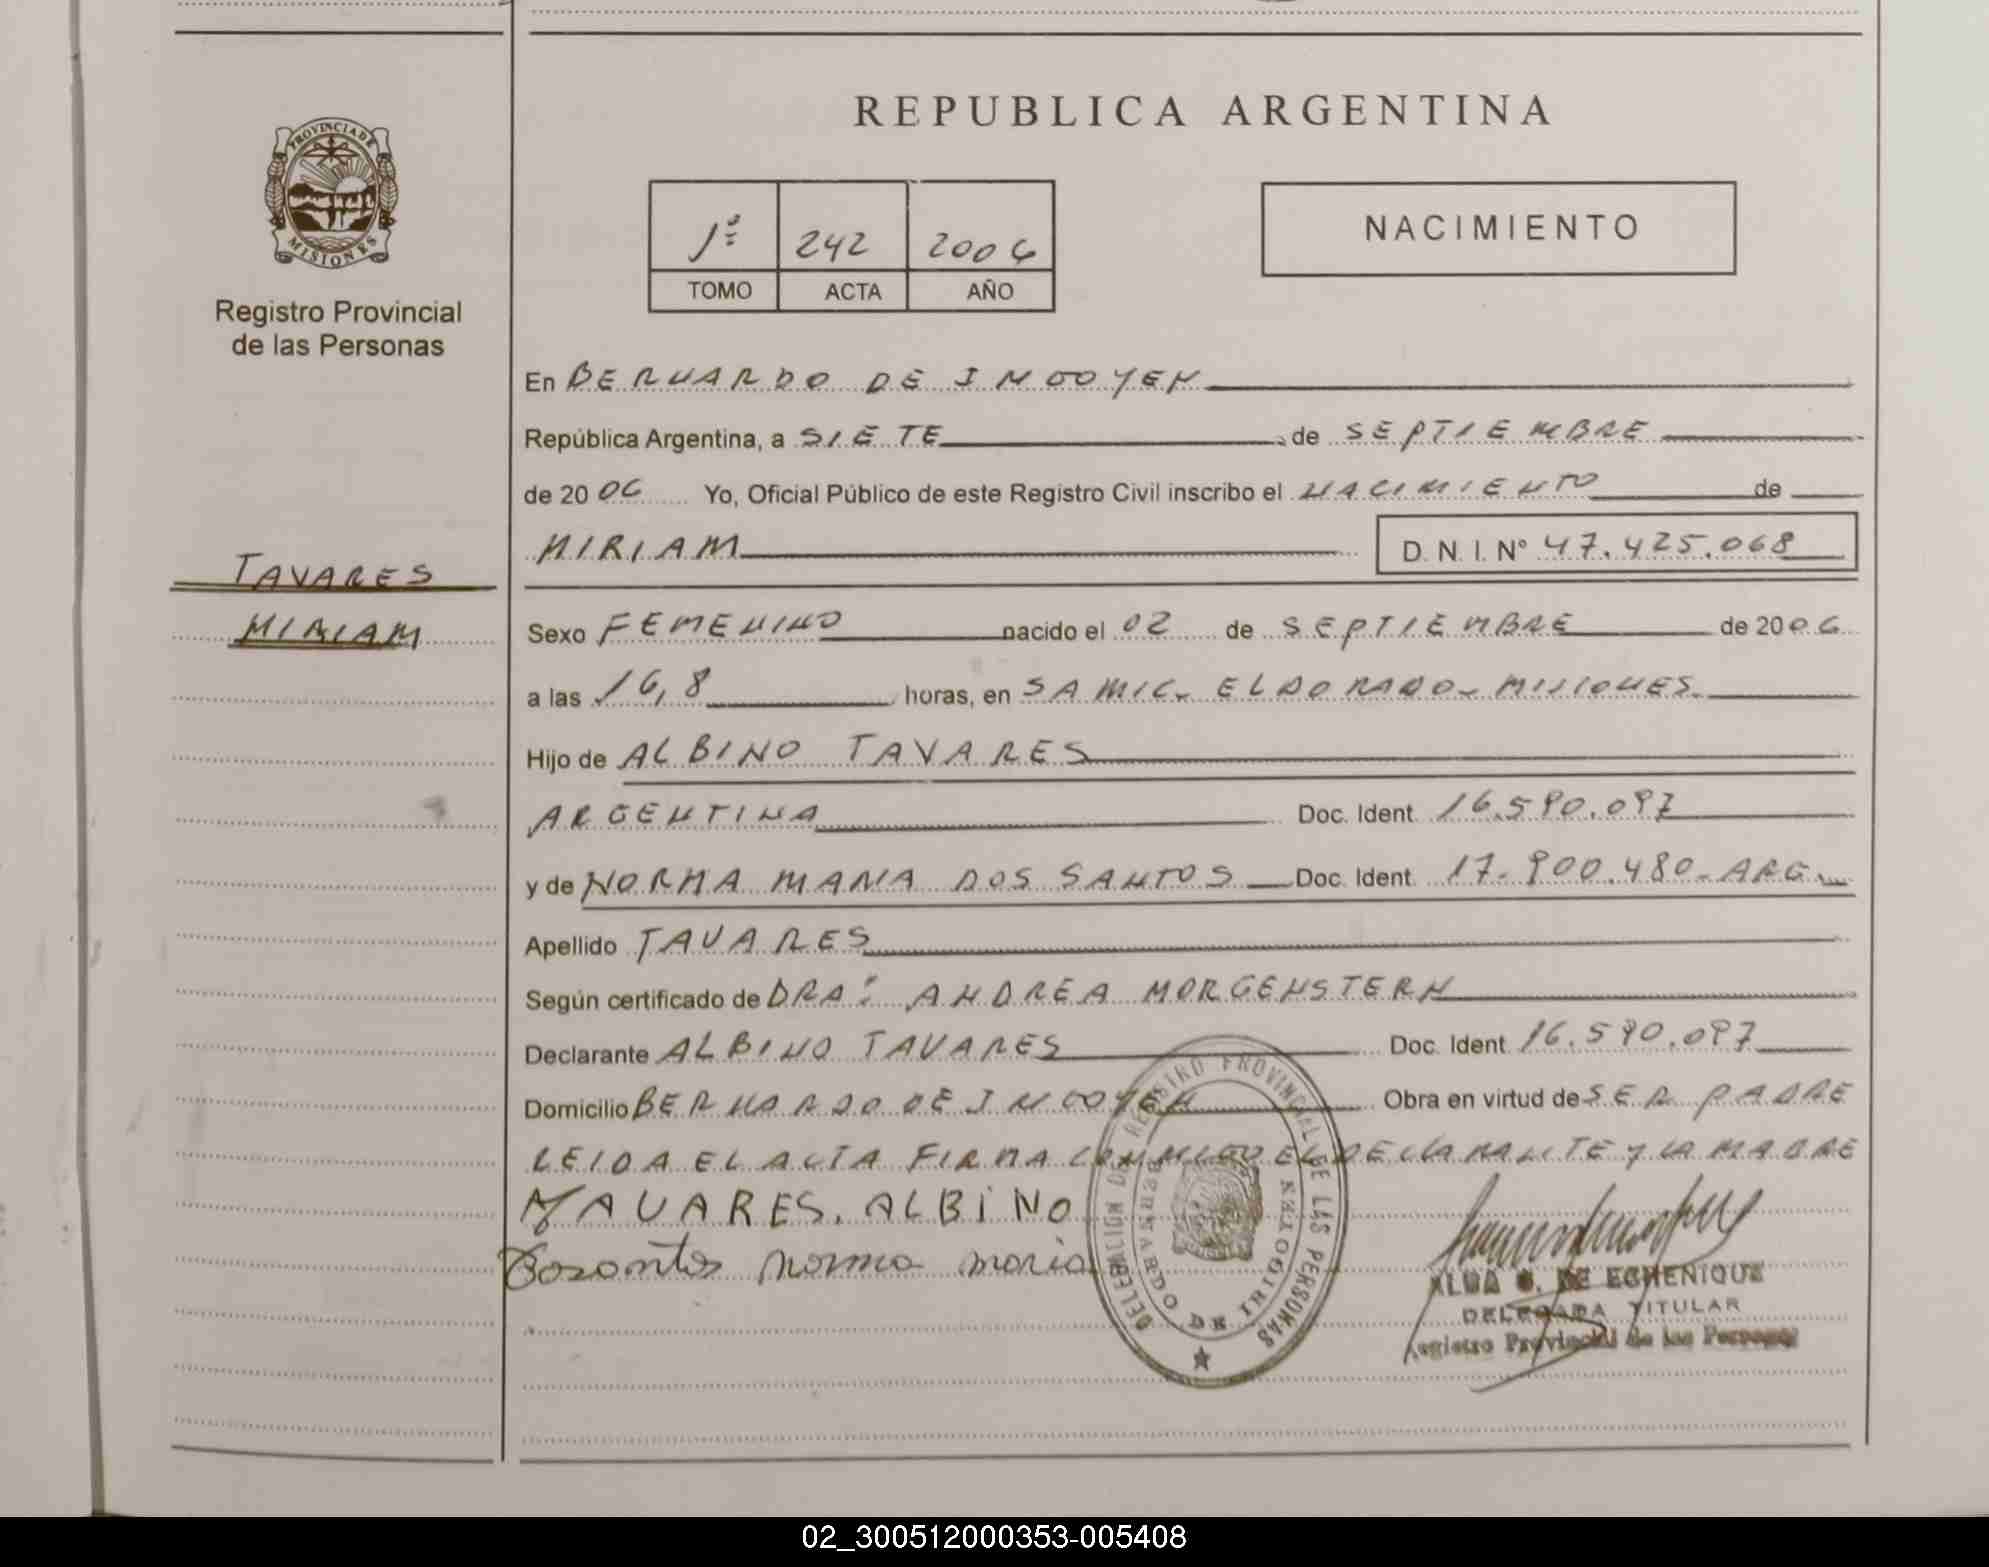 REPUBLICA ARGENTINA
PROVINCIA DE
MISIONES
Registro Provincial
de las Personas
1ª 242 2006
TOMO ACTA AÑO
NACIMIENTO
En BERNARDO DE IRIGOYEN
República Argentina, a SIETE de SEPTIEMBRE
de 2006 Yo, Oficial Público de este Registro Civil inscribo el NACIMIENTO de
MIRIAM D. N. I. Nº 47.425.068
TAVARES
MIRIAM
Sexo FEMENINO nacido el 02 de SEPTIEMBRE de 2006
a las 16,8 horas, en SAMIC. ELDORADO - MISIONES
Hijo de ALBINO TAVARES
ARGENTINA Doc. Ident. 16.590.097
y de NORMA MARIA DOS SANTOS Doc. Ident. 17.900.480 - ARG.
Apellido TAVARES
Según certificado de DRA: ANDREA MORGENSTERN
Declarante ALBINO TAVARES Doc. Ident. 16.590.097
Domicilio BERNARDO DE IRIGOYEN Obra en virtud de SER PADRE
LEIDA EL ACTA FIRMA CONMIGO EL DECLARANTE Y LA MADRE
TAVARES. ALBINO
Dosantos norma maría
DELEGACION DE REGISTRO PROVINCIAL DE LAS PERSONAS
BERNARDO DE IRIGOYEN
ALBA DE ECHENIQUE
DELEGADA TITULAR
Registro Provincial de las Personas
02_300512000353-005408